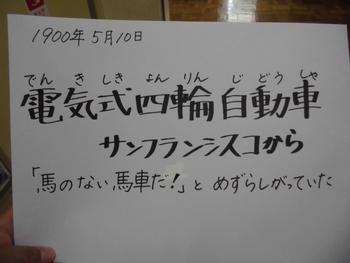 1900年5月10日
でんきしきよんりんじどうしゃ
電気式四輪自動車
サンフランシスコから
「馬のない馬車だ!」と めずらしがっていた